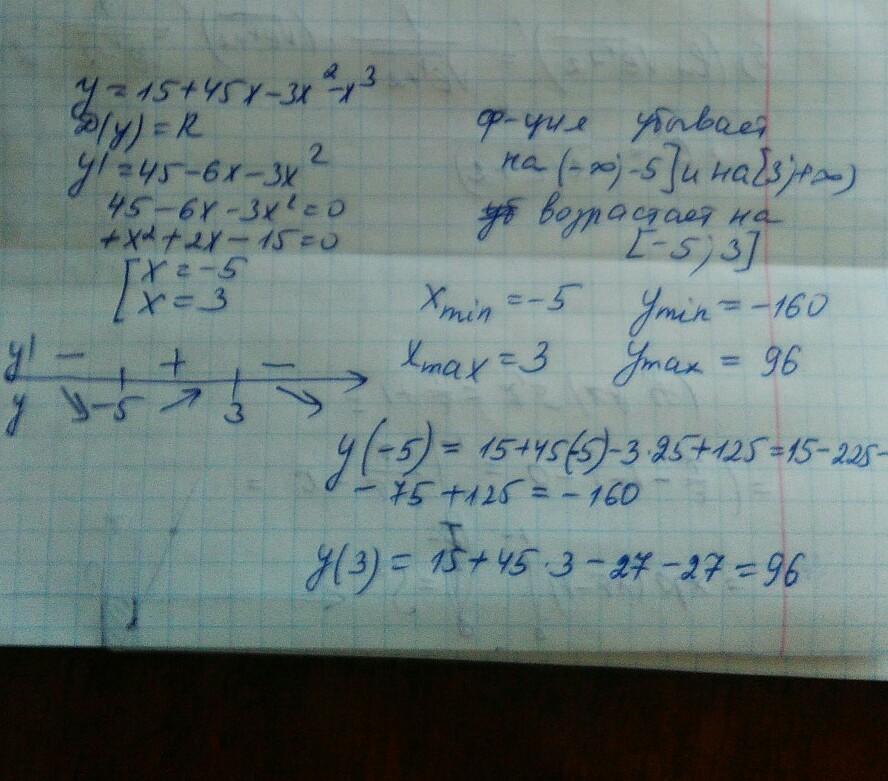 y = 15 + 45x - 3x² - x³
D(y) = R
y' = 45 - 6x - 3x²
45 - 6x - 3x² = 0
+x² + 2x - 15 = 0
[ x = -5
x = 3
y' - + -
y ↘ -5 ↗ 3 ↘
ф-ция убывает
на (-∞; -5] и на [3; +∞)
возрастает на
[-5; 3]
x min = -5 y min = -160
x max = 3 y max = 96
y(-5) = 15 + 45(-5) - 3·25 + 125 = 15 - 225 -
- 75 + 125 = -160
y(3) = 15 + 45·3 - 27 - 27 = 96